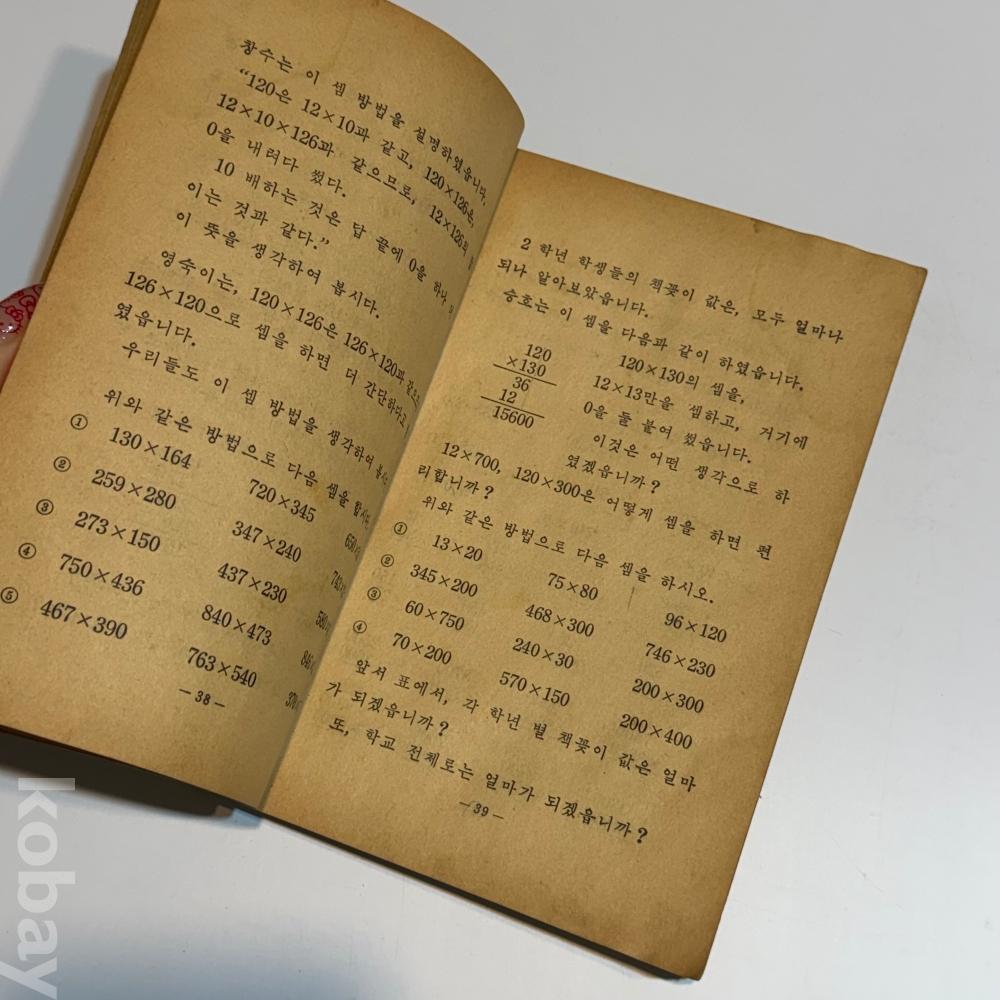 창수는 이 셈 방법을 설명하였읍니다.
“120은 12×10과 같고, 120×126은,
12×10×126과 같으므로, 12×126의
0을 내려다 썼다.
10 배하는 것은 답 끝에 0을 하나
이는 것과 같다.”
이 뜻을 생각하여 봅시다.
영숙이는, 120×126은 126×120과 같으
126×120으로 셈을 하면 더 간단하다고,
였읍니다.
우리들도 이 셈 방법을 생각하여 봅시
위와 같은 방법으로 다음 셈을 합시다.
① 130×164 720×345
② 259×280 347×240
③ 273×150 437×230
④ 750×436 840×473
⑤ 467×390 763×540
—38—
2 학년 학생들의 책꽂이 값은, 모두 얼마나
되나 알아보았읍니다.
승호는 이 셈을 다음과 같이 하였읍니다.
120
×130
36
12
15600
120×130의 셈을,
12×13만을 셈하고, 거기에
0을 둘 붙여 썼읍니다.
이것은 어떤 생각으로 하
였겠읍니까?
12×700, 120×300은 어떻게 셈을 하면 편
리합니까?
위와 같은 방법으로 다음 셈을 하시오.
① 13×20 75×80 96×120
② 345×200 468×300 746×230
③ 60×750 240×30 200×300
④ 70×200 570×150 200×400
앞서 표에서, 각 학년 별 책꽂이 값은 얼마
가 되겠읍니까?
또, 학교 전체로는 얼마가 되겠읍니까?
—39—
kobay